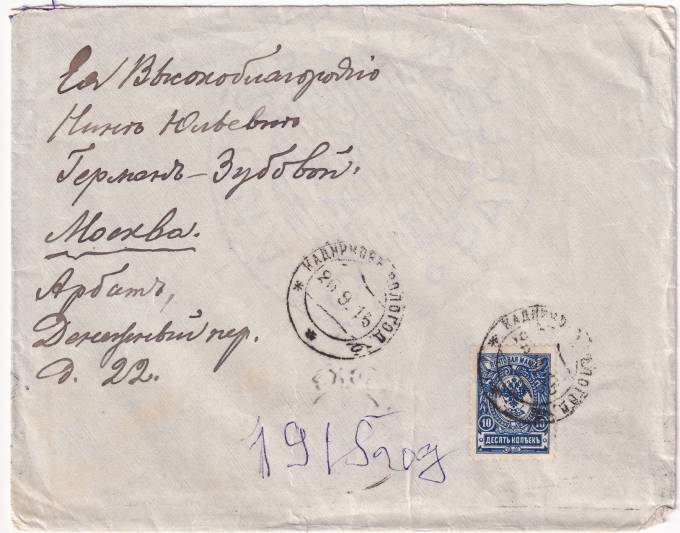 Ея Высокоблагородію
Нинѣ Юльевнѣ
Германъ-Зубовой.
Москва.
Арбатъ,
Денежный пер.
д. 22.
* КАДНИКОВЪ ВОЛОГОД. *
26.9.15
КАДНИКО ВОЛОГОД.
ПОЧТОВАЯ МАРКА
10 10
ДЕСЯТЬ КОПѢЕКЪ
1915 год